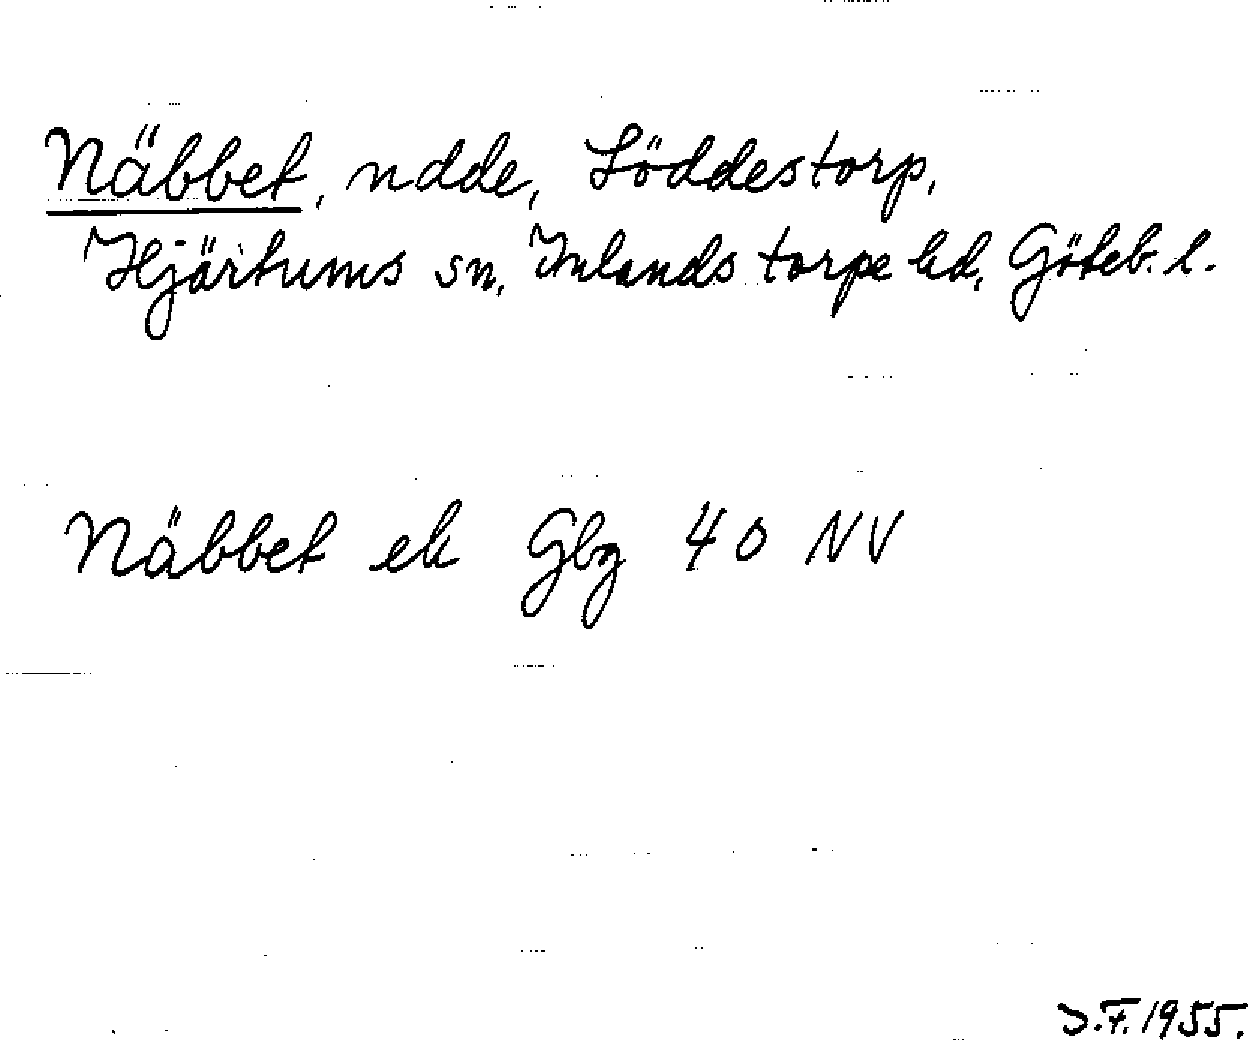 Näbbet, ndde, Söddestorp,
Hjärtums sn, Inlands torpe hd, Göteb. l.
Näbbet ek Gbg 40 NV
J.F. 1955.